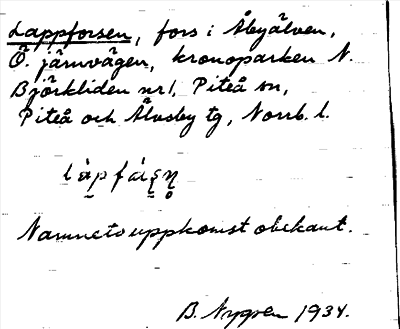 Lappforsen, fors i Åbyälven,
Ö. järnvägen, kronoparken N.
Björkliden nr 1, Piteå sn,
Piteå och Älvsby tg, Norrb. l.
Namnets uppkomst obekant.
B. Nygren 1934.